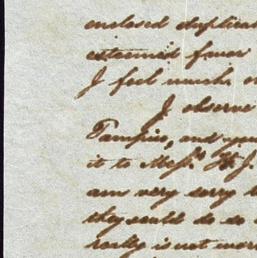 enclosed duplicat
esteemed favor
I feel much o
I observe
Tampico, and your
it to Messrs. H. J.
am very sorry t
they could do so
really is not wor